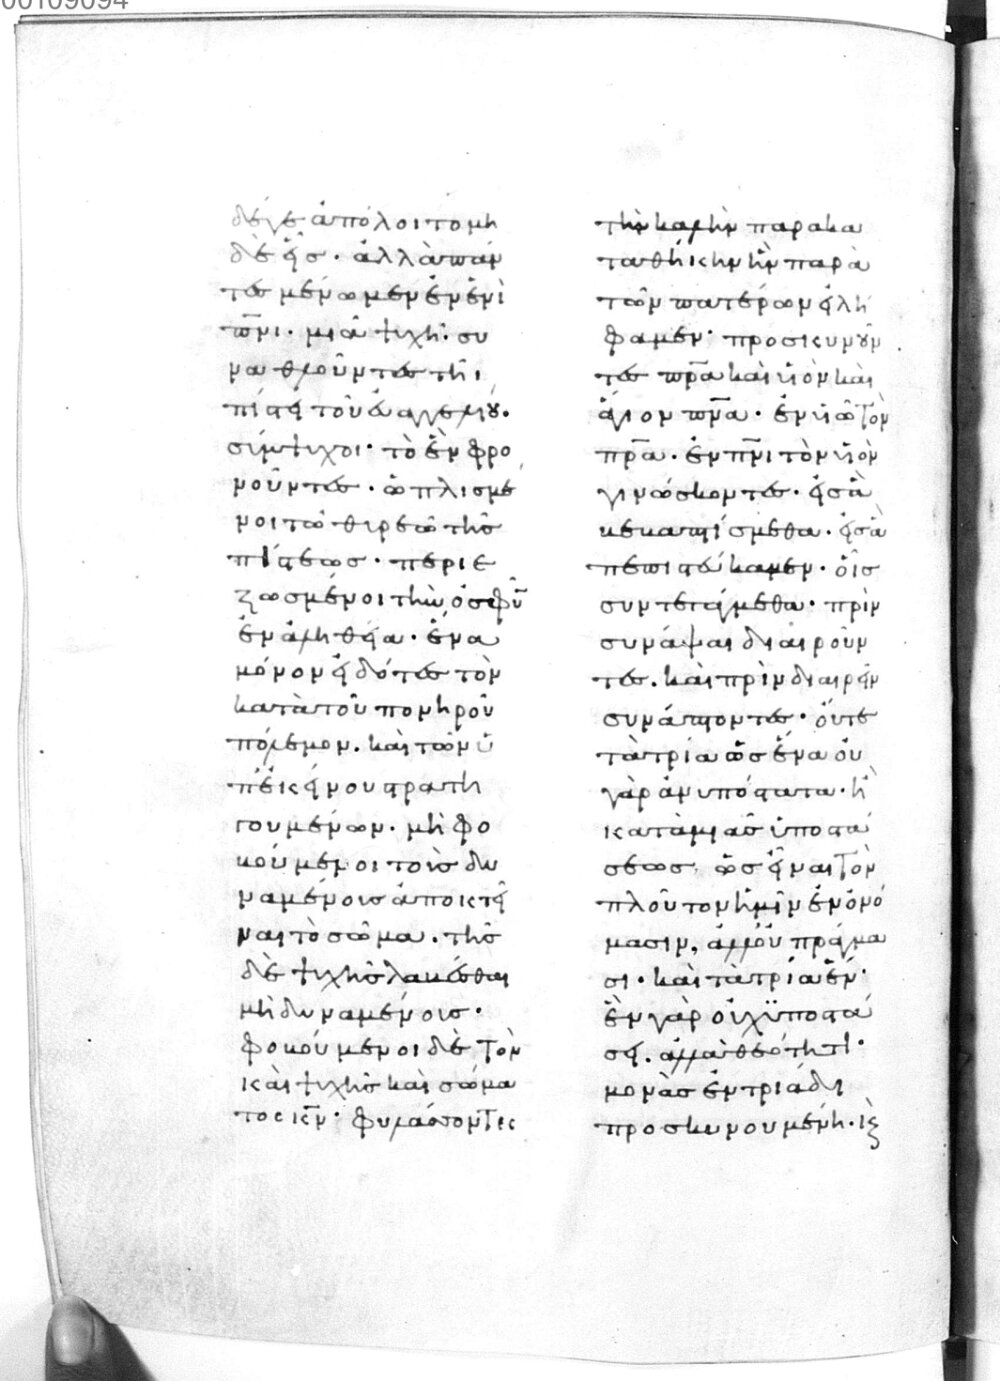 00109094
δέγε ἀπόλοιτο μη
δὲ εἷς · ἀλλὰ πάν
τες μένωμεν ἐν ἑνὶ
πνι · μιᾶ ψυχῆ · συ
ναθλοῦντες τῆι
πίστει τοῦ εὐαγγελίου ·
σύμψυχοι · τὸ ἓν φρο
νοῦντες · ὡπλισμέ
νοι τῶ θυρεῶ τῆς
πίστεως · περιε
ζωσμένοι τὴν ὀσφῦν
ἐν ἀληθεία · ἕνα
μόνον εἰδότες τὸν
κατὰ τοῦ πονηροῦ
πόλεμον · καὶ τῶν ὑ
π' ἐκείνου στρατη
γουμένων · μὴ φο
βούμενοι τοὺς δυ
ναμένους ἀποκτεῖ
ναι τὸ σῶμα · τῆς
δὲ ψυχῆς λαβέσθαι
μὴ δυναμένους ·
φοβούμενοι δὲ τὸν
καὶ ψυχῆς καὶ σώμα
τος κν · φυλάσσοντες
τὴν καλὴν παρακα
ταθήκην ἣν παρὰ
τῶν πατέρων εἰλή
φαμεν · προσκυνοῦν
τες πρα καὶ υἱὸν καὶ
ἅγιον πνα · ἐν υἱῶ τὸν
πρα · ἐν πνι τὸν υἱὸν
γινώσκοντες · εἰς ἃ
βεβαπτίσμεθα · εἰς ἃ
πεπιστεύκαμεν · οἷς
συντετάγμεθα · πρὶν
συνάψαι διαιροῦν
τες · καὶ πρὶν διαιρεῖν
συνάπτοντες · οὔτε
τὰ τρία ὡς ἕνα οὐ
γὰρ ἀνυπόστατα · ἢ
κατὰ μιᾶς ὑποστά
σεως, ὡς εἶναι τὸν
πλοῦτον ἡμῖν ἐν ὀνό
μασιν, ἀλλ' οὐ πράγμα
σι · καὶ τὰ τρία ἕν ·
ἓν γὰρ οὐχ ὑποστά
σει · ἀλλὰ θεότητι ·
μονὰς ἐν τριάδι
προσκυνουμένη · κς